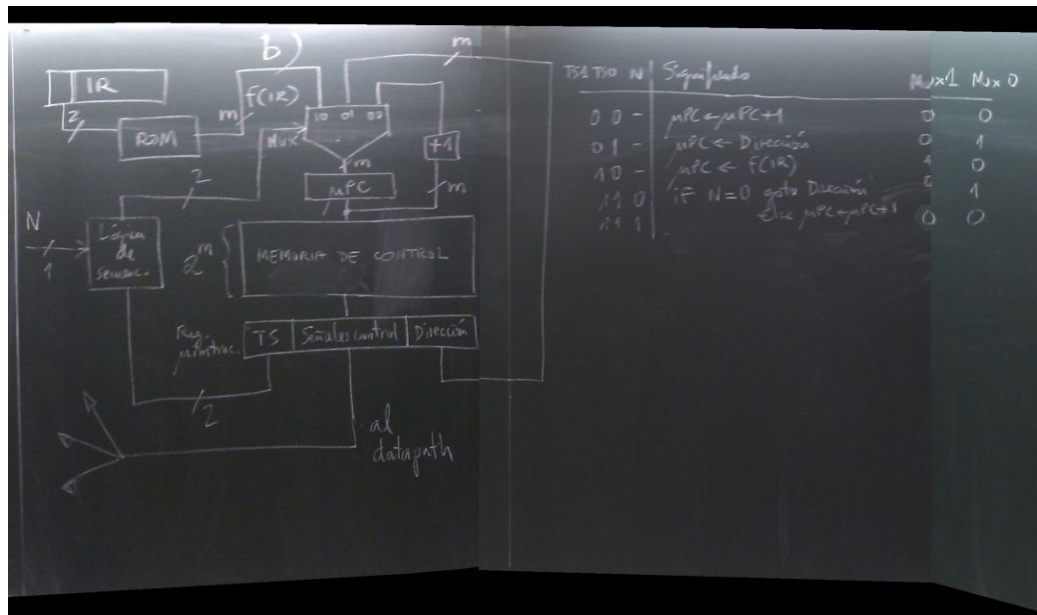 b)
m
IR
2
ROM
m
f(IR)
10 01 00
MUX
+1
m
m
μPC
2
N
1
Lógica
de
secuenc.
2^m
MEMORIA DE CONTROL
Reg.
μinstruc.
TS Señales control Dirección
2
al
datapath
TS1 TS0 N Significado Mux1 Mux0
0 0 - μPC ← μPC+1 0 0
0 1 - μPC ← Dirección 0 1
1 0 - μPC ← f(IR) 1 0
1 1 0 if N=0 goto Dirección 0 1
1 1 1 else μPC←μPC+1 0 0